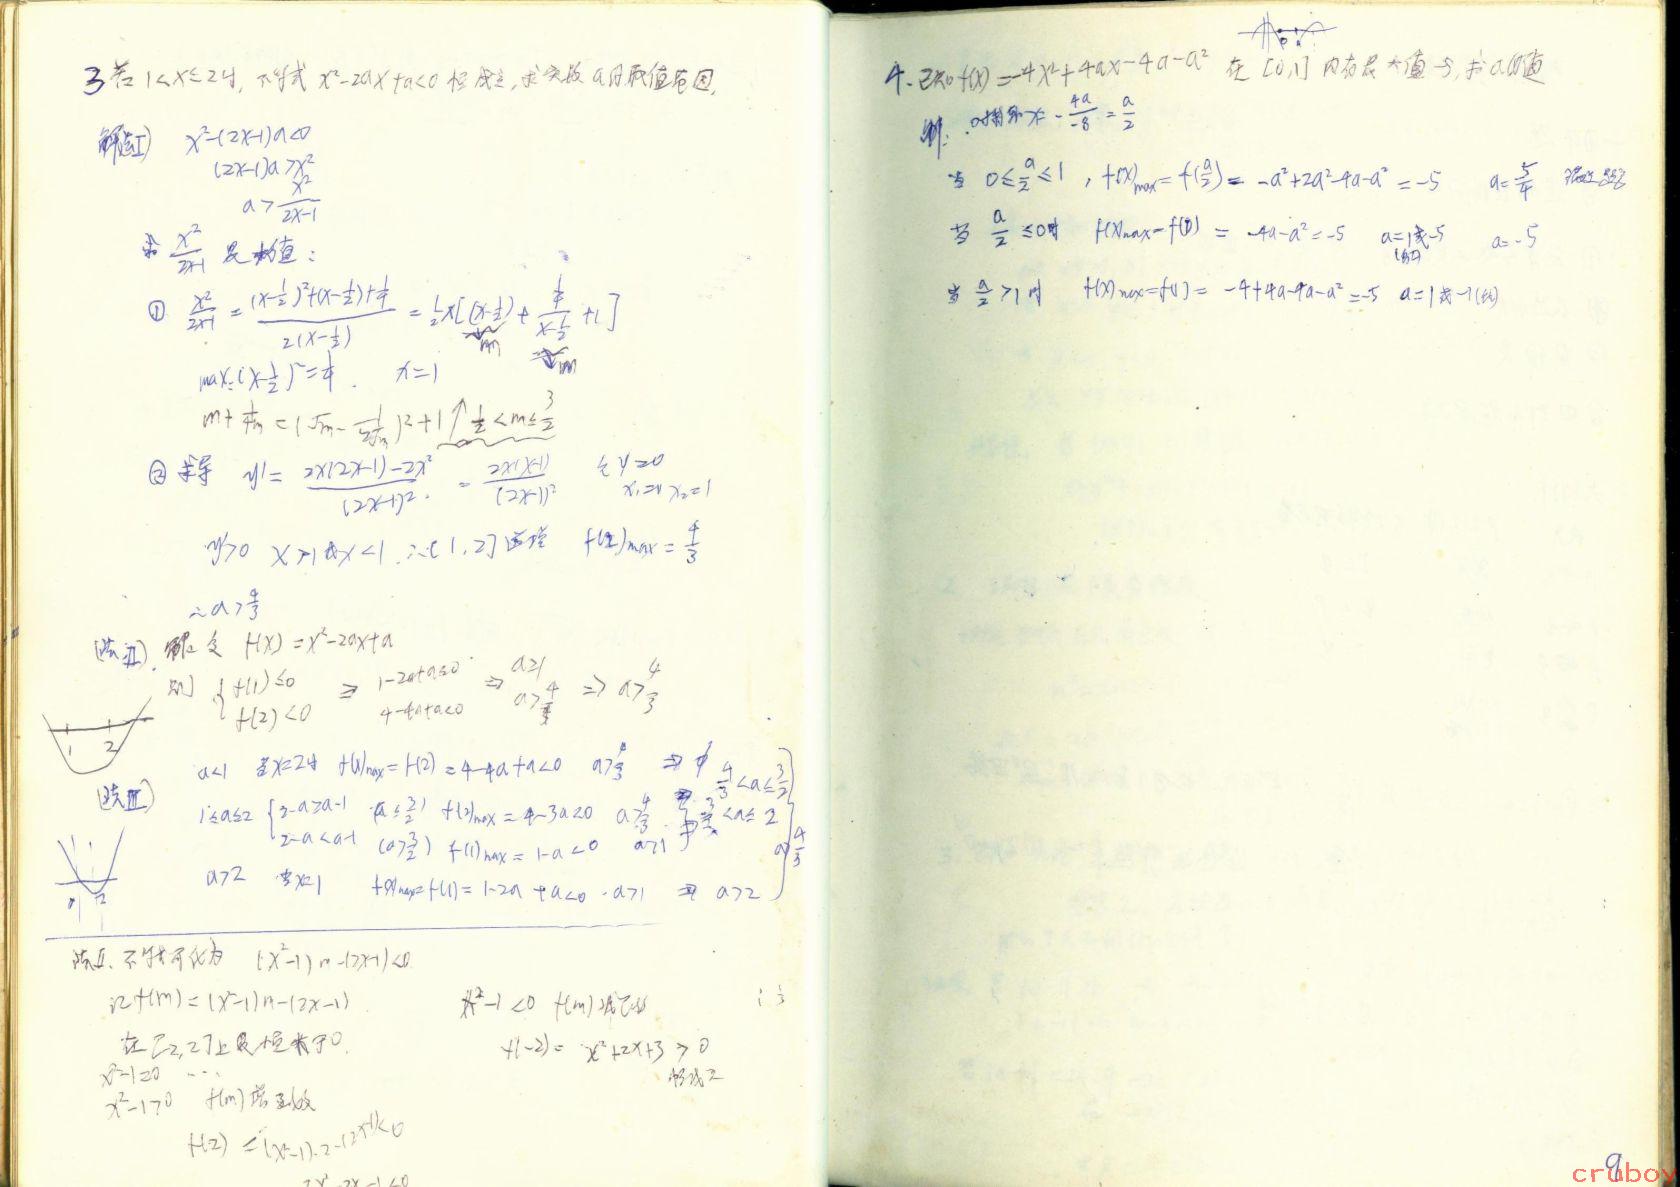 3 若 1<x≤2时, 不等式 x²-2ax+a<0 恒成立, 求实数a的取值范围.
解(法I) x²-(2x-1)a<0
(2x-1)a>x²
a > x²/(2x-1)
求 x²/(2x-1) 最大值:
① x²/(2x-1) = ((x-1/2)²+(x-1/2)+1/4)/(2(x-1/2)) = 1/2 x[(x-1/2) + (1/4)/(x-1/2) +1]
(x-1/2)² = 1/4. x=1
m+1/4m = (√m - 1/(2√m))²+1 ↑ 1/2<m≤3/2
② 求导 y'= (2x(2x-1)-2x²)/(2x-1)² = 2x(x-1)/(2x-1)² 令y'=0
x₁=0 x₂=1
y'>0 x>1或x<1 ∴[1,2]递增 f(2)max = 4/3
∴a>4/3
(法II). 解: 令 f(x)=x²-2ax+a
则 { f(1)≤0 ⇒ 1-2a+a≤0 ⇒ a≥1
f(2)<0 4-4a+a<0 a>4/3 ⇒ a>4/3
1 2
(法III)
a<1 当x=2时 f(x)max=f(2)=4-4a+a<0 a>4/3 ⇒ φ
1≤a≤2 { 2-a≥a-1 (a≤3/2) f(2)max=4-3a<0 a>4/3 4/3<a≤3/2
2-a<a-1 (a>3/2) f(1)max=1-a<0 a>1 3/2<a≤2
a>2 当x=1 f(x)max=f(1)=1-2a+a<0 a>1 ⇒ a>2
a>4/3
法II. 不等式可化为 (x²-1)m-(2x-1)<0
记f(m)=(x²-1)m-(2x-1)
x²-1<0 f(m)减
在[-2,2]上
f(-2)= x²+2x+3 >0
x²-1=0 ...
x²-1>0 f(m)增函数
f(2) =(x²-1)·2-(2x-1)<0
2x²-2x-1<0
4. 已知f(x)=-4x²+4ax-4a-a² 在[0,1]内有最大值-5, 求a的值
解: 对称轴x= -4a/-8 = a/2
当 0≤a/2≤1, f(x)max=f(a/2)= -a²+2a²-4a-a² =-5 a=5/4
当 a/2≤0时 f(x)max=f(0) = -4a-a²=-5 a=1或-5 (舍) a=-5
当 a/2>1时 f(x)max=f(1)= -4+4a-4a-a²=-5 a=1或-1(舍)
9
cruboy